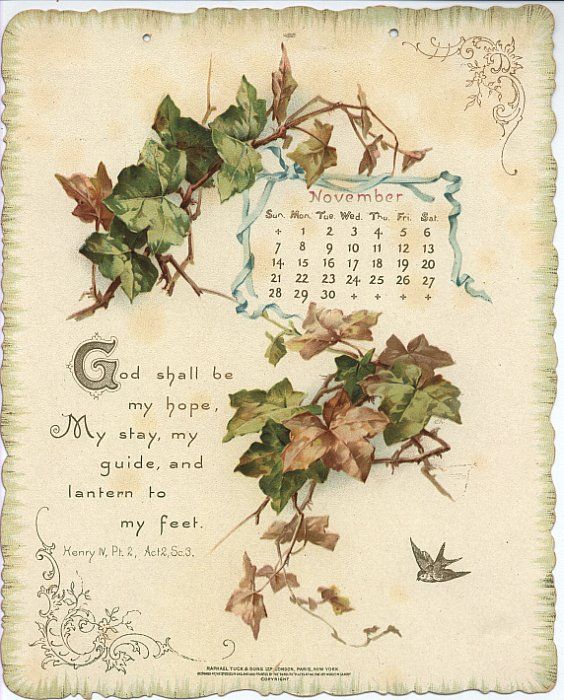 November
Sun. Mon. Tue. Wed. Thu. Fri. Sat.
+ 1 2 3 4 5 6
7 8 9 10 11 12 13
14 15 16 17 18 19 20
21 22 23 24 25 26 27
28 29 30 + + + +
God shall be
my hope,
My stay, my
guide, and
lantern to
my feet.
Henry IV, Pt. 2, Act 2, Sc. 3.
RAPHAEL TUCK & SONS LONDON, PARIS, NEW YORK.
COPYRIGHT.